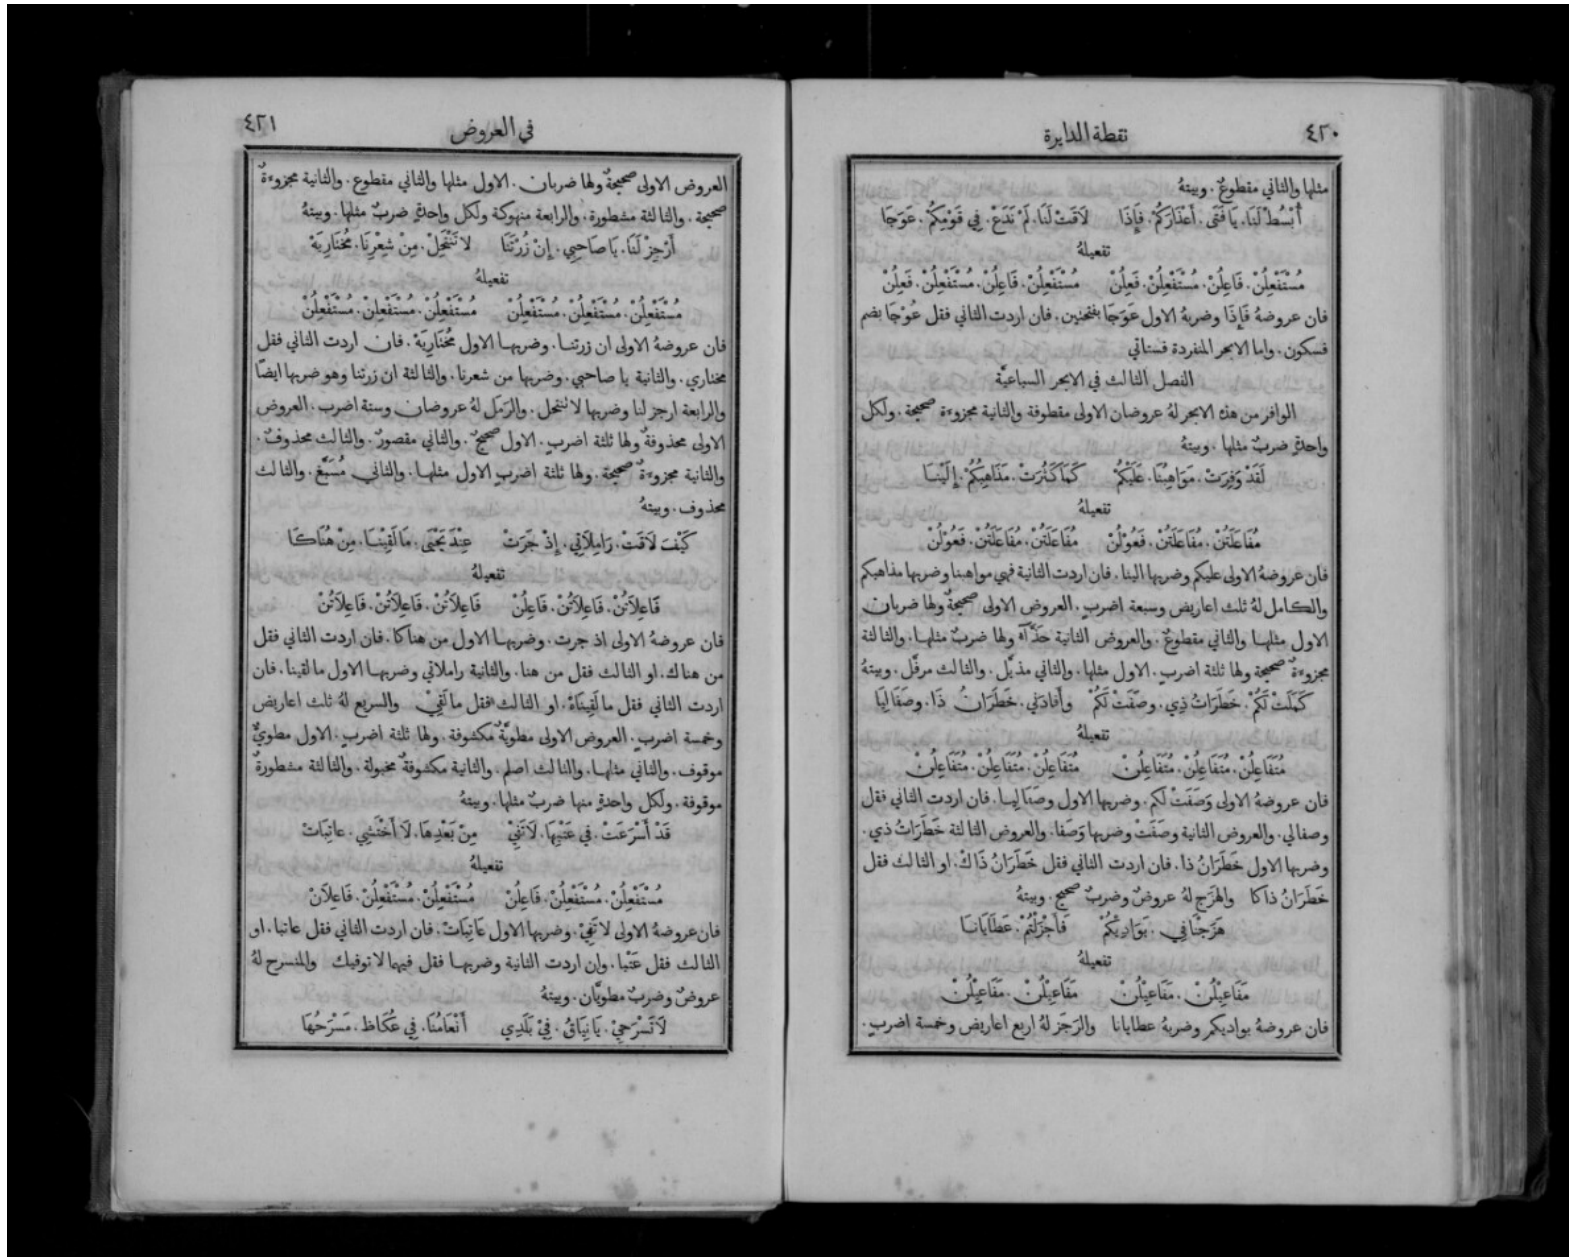 ٤٢٠
نقطة الدايرة
مثلها والثاني مقطوعٌ. وبيتهُ
أُبْسُطْ لَنَا. يَا فَتَى. أَعْذَارَكُمْ. فَإِذَا لاَقَتْ لَنَا. لَمْ نَدَعْ. فِي قَوْمِكُمْ. عَوَجَا
تفعيلهُ
مُسْتَفْعِلُنْ. فَاعِلُنْ. مُسْتَفْعِلُنْ. فَعِلُنْ مُسْتَفْعِلُنْ. فَاعِلُنْ. مُسْتَفْعِلُنْ. فَعِلُنْ
فان عروضهُ فَإِذَا وضربهُ الاول عَوَجَا بفتحتين. فان اردت الثاني فقل عُوْجَا بضم
فسكون. واما الابحر المنفردة فستاتي
الفصل الثالث في الابحر السباعيَّة
الوافر من هذه الابحر لهُ عروضان الاولى مقطوفة والثانية مجزوءة صحيحة. ولكل
واحدةٍ ضربٌ مثلها. وبيتهُ
لَقَدْ وَفِرَتْ. مَوَاهِبُنَا. عَلَيْكُمْ كَمَا كَثُرَتْ. مَذَاهِبُكُمْ. إِلَيْنَا
تفعيلهُ
مُفَاعَلَتُنْ. مُفَاعَلَتُنْ. فَعُوْلُنْ مُفَاعَلَتُنْ. مُفَاعَلَتُنْ. فَعُوْلُنْ
فان عروضهُ الاولى عليكم وضربها الينا. فان اردت الثانية فهي مواهبنا وضربها مذاهبكم
والكامل لهُ ثلث اعاريض وسبعة اضربٍ. العروض الاولى صحيحةٌ ولها ضربان
الاول مثلها والثاني مقطوعٌ. والعروض الثانية حَذَّآء ولها ضربٌ مثلها. والثالثة
مجزوءةٌ صحيحة ولها ثلثة اضربٍ. الاول مثلها. والثاني مذيَّل. والثالث مرفَّل. وبيتهُ
كَمَلَتْ لَكُمْ. خَطَرَاتُ ذِي. وَصَفَتْ لَكُمْ وَأَفَادَنِي. خَطَرَانُ ذَا. وصَفَا لِيَا
تفعيلهُ
مُتَفَاعِلُنْ. مُتَفَاعِلُنْ. مُتَفَاعِلُنْ مُتَفَاعِلُنْ. مُتَفَاعِلُنْ. مُتَفَاعِلُنْ
فان عروضهُ الاولى وَصَفَتْ لَكم. وضربها الاول وصَفَا ليا. فان اردت الثاني فقل
وصفا لي. والعروض الثانية وصَفَتْ وضربها وَصَفا. والعروض الثالثة خَطَرَاتُ ذي.
وضربها الاول خَطَرَانُ ذا. فان اردت الثاني فقل خَطَرَانُ ذَاكْ. او الثالث فقل
خَطَرَانُ ذاكا والهَزَج لهُ عروضٌ وضربٌ صحيح. وبيتهُ
هَزَجْنَا فِي. بَوَادِيْكُمْ فَأَجْزَلْتُمْ. عَطَايَانَا
تفعيلهُ
مَفَاعِيْلُنْ. مَفَاعِيْلُنْ مَفَاعِيْلُنْ. مَفَاعِيْلُنْ
فان عروضهُ بواديكم وضربهُ عطايانا والرَجَز لهُ اربع اعاريض وخمسة اضربٍ.
٤٢١
في العروض
العروض الاولى صحيحةٌ ولها ضربان. الاول مثلها والثاني مقطوع. والثانية مجزوءةٌ
صحيحة. والثالثة مشطورة. والرابعة منهوكة ولكل واحدةٍ ضربٌ مثلها. وبيتهُ
أَرْجِزْ لَنَا. يَا صَاحِبِي. إِنْ زُرْتَنَا لا تَنْتَحِلْ. مِنْ شِعْرِنَا. مُخْتَارِيَهْ
تفعيلهُ
مُسْتَفْعِلُنْ. مُسْتَفْعِلُنْ. مُسْتَفْعِلُنْ مُسْتَفْعِلُنْ. مُسْتَفْعِلُنْ. مُسْتَفْعِلُنْ
فان عروضهُ الاولى ان زرتنا. وضربها الاول مُخْتَارِيَهْ. فان اردت الثاني فقل
مختاري. والثانية يا صاحبي. وضربها من شعرنا. والثالثة ان زرتنا وهو ضربها ايضاً
والرابعة ارجز لنا وضربها لا تنتحل. والرَمَل لهُ عروضان وستة اضرب. العروض
الاولى محذوفةٌ ولها ثلثة اضربٍ. الاول صحيحٌ. والثاني مقصورٌ. والثالث محذوفٌ.
والثانية مجزوءةٌ صحيحة. ولها ثلثة اضربٍ الاول مثلها. والثاني مُسَبَّغ. والثالث
محذوف. وبيتهُ
كَيْفَ لاَقَتْ. رَامِلاَتِي. إِذْ جَرَتْ عِنْدَ يَحْيَى. مَا لَقِيْنَا. مِنْ هُنَاكَا
تفعيلهُ
فَاعِلاَتُنْ. فَاعِلاَتُنْ. فَاعِلُنْ فَاعِلاَتُنْ. فَاعِلاَتُنْ. فَاعِلاَتُنْ
فان عروضهُ الاولى اذ جرت. وضربها الاول من هناكا. فان اردت الثاني فقل
من هناك. او الثالث فقل من هنا. والثانية راملاتي وضربها الاول ما لقينا. فان
اردت الثاني فقل ما لَقِينَاهْ. او الثالث فقل ما لَقِيْ والسريع لهُ ثلث اعاريض
وخمسة اضربٍ. العروض الاولى مطويَّةٌ مكشوفة. ولها ثلثة اضربٍ. الاول مطويٌّ
موقوف. والثاني مثلها. والثالث اصلم. والثانية مكشوفةٌ مخبولة. والثالثة مشطورةٌ
موقوفة. ولكل واحدةٍ منها ضربٌ مثلها. وبيتهُ
قَدْ أَسْرَعَتْ. فِي عَتْبِهَا. لاَ تَفِيْ مِنْ بَعْدِهَا. لاَ أَخْتَشِي. عاتِبَاتْ
تفعيلهُ
مُسْتَفْعِلُنْ. مُسْتَفْعِلُنْ. فَاعِلُنْ مُسْتَفْعِلُنْ. مُسْتَفْعِلُنْ. فَاعِلاَنْ
فان عروضهُ الاولى لا تَفِيْ. وضربها الاول عَاتِبَاتْ. فان اردت الثاني فقل عاتبا. او
الثالث فقل عَتْبا. وان اردت الثانية وضربها فقل فيهما لا توفيك والمنسرح لهُ
عروضٌ وضربٌ مطويَّان. وبيتهُ
لاَ تَسْرَحِيْ. يَا نِيَاقُ. فِيْ بَلَدِي أَنْعَامُنَا. فِي عُكَاظَ. مَسْرَحُهَا